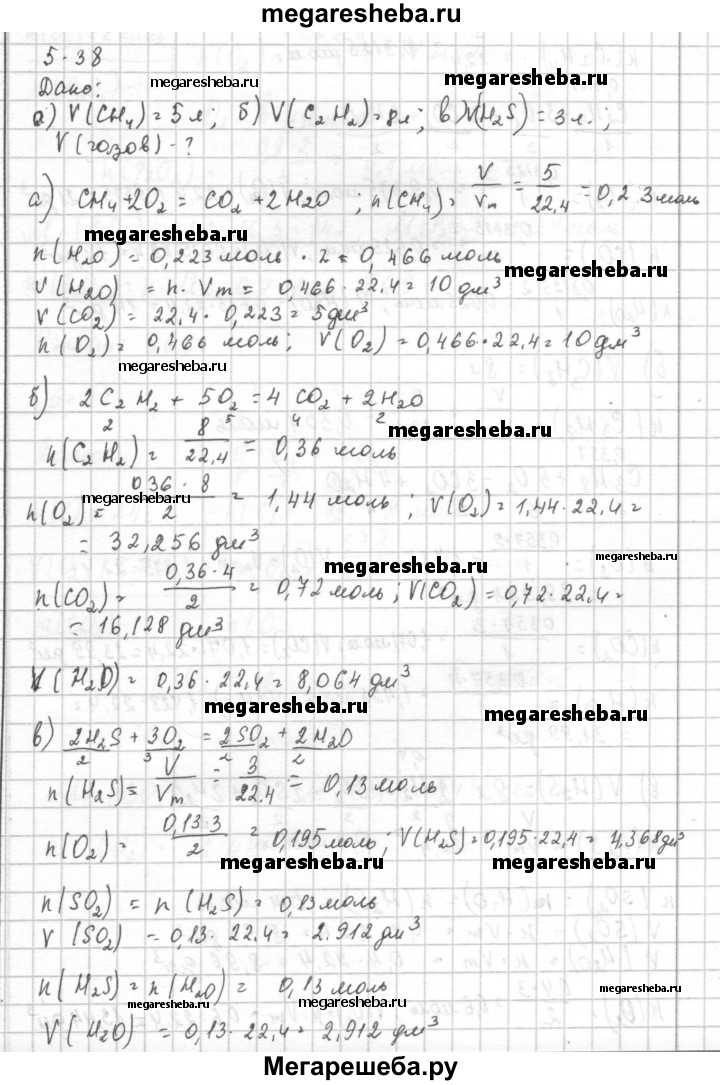 megaresheba.ru
5.38
Дано:
megaresheba.ru
а) V(CH₄) = 5 л; б) V(C₂H₂) = 8 л; в) V(H₂S) = 3 л.;
V(газов) - ?
а) CH₄ + 2O₂ = CO₂ + 2H₂O ; n(CH₄) = V/Vm = 5/22,4 = 0,2 3 моль
megaresheba.ru
n(H₂O) = 0,223 моль · 2 = 0,466 моль
megaresheba.ru
V(H₂O) = n · Vm = 0,466 · 22,4 = 10 дм³
V(CO₂) = 22,4 · 0,223 = 5 дм³
n(O₂) = 0,466 моль; V(O₂) = 0,466 · 22,4 = 10 дм³
megaresheba.ru
б) 2C₂H₂ + 5O₂ = 4CO₂ + 2H₂O
2 5 4 2
megaresheba.ru
n(C₂H₂) = 8/22,4 = 0,36 моль
megaresheba.ru
n(O₂) = 036 · 8/2 = 1,44 моль; V(O₂) = 1,44 · 22,4 =
= 32,256 дм³
megaresheba.ru
megaresheba.ru
n(CO₂) = 0,36 · 4/2 = 0,72 моль; V(CO₂) = 0,72 · 22,4 =
= 16,128 дм³
V(H₂O) = 0,36 · 22,4 = 8,064 дм³
megaresheba.ru
megaresheba.ru
в) 2H₂S + 3O₂ = 2SO₂ + 2H₂O
2 3 2 2
n(H₂S) = V/Vm = 3/22.4 = 0,13 моль
n(O₂) = 0,13 · 3/2 = 0,195 моль; V(H₂S) = 0,195 · 22,4 = 4,368 дм³
megaresheba.ru
megaresheba.ru
n(SO₂) = n(H₂S) = 0,13 моль
V(SO₂) = 0,13 · 22.4 = 2.912 дм³
n(H₂S) = n(H₂O) = 0,13 моль
megaresheba.ru
megaresheba.ru
V(H₂O) = 0,13 · 22,4 = 2,912 дм³
Мегарешеба.ру